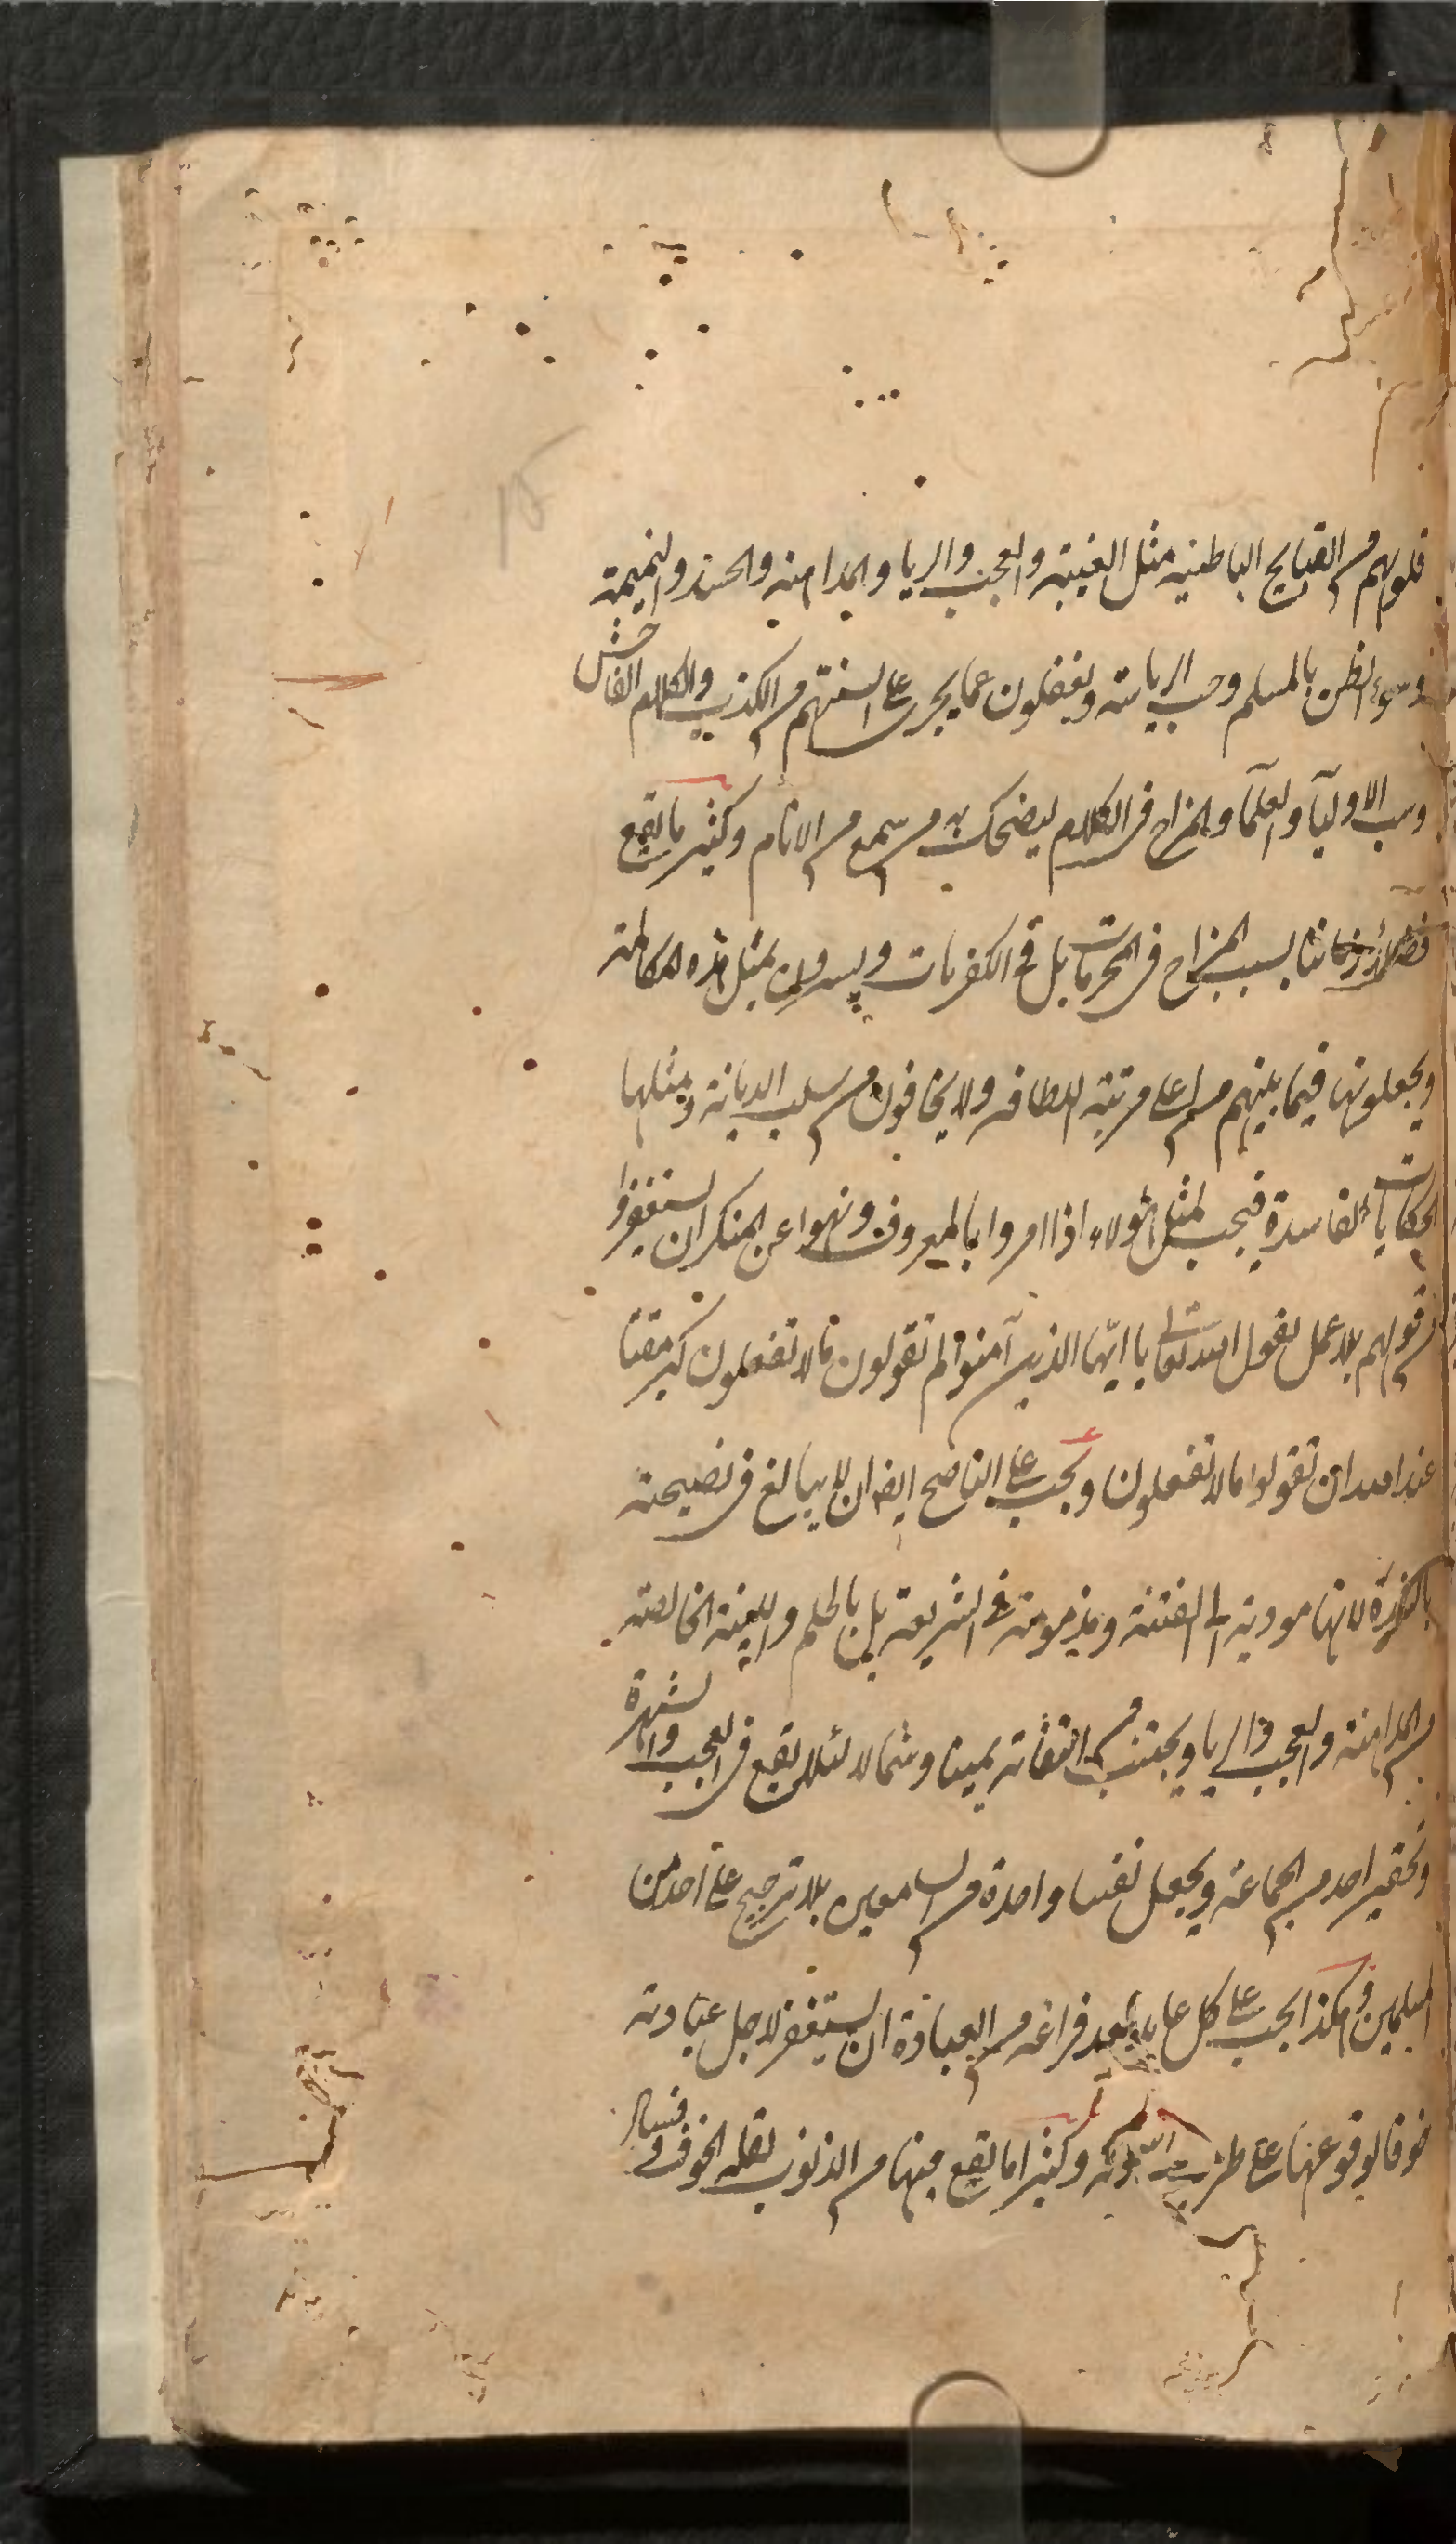 15
قلوبهم من القبايح الباطنية مثل الغيبة والعجب والريا والمداهنة والحسد والنميمة
وسوء الظن بالمسلم وحب الرياسة ويغفلون عما يجرى على السنتهم من الكذب والكلام الفاحش
وسب الاوليآ والعلمآ والمزاح فى الكلام ليضحك به من سمع من الانام وكثير ما يقع
بسبب المزاح فى المحرمات بل فى الكفريات ويسرون بمثل هذه المكالمة
ويجعلونها فيما بينهم من اعلى مرتبة اللطافة ولا يخافون من سلب الديانة ومثلها
الحكايات الفاسدة فيجب لمثل هؤلاء اذا امروا بالمعروف ونهوا عن المنكر ان يستغفروا
من قولهم بلا عمل لقول الله تعالى يا ايها الذين آمنوا لم تقولون ما لا تفعلون كبر مقتا
عند الله ان تقولوا ما لا تفعلون ويجب على الناصح ايضا ان لا يبالغ فى نصيحته
لانها مودية الى الفتنة ومذمومة فى الشريعة بل بالحلم والنية الخالصة
من المداهنة والعجب والريا ويجتنب من التفاته يمينا وشمالا لئلا يقع فى العجب والشهرة
وتحقير احد من الجماعة ويجعل نفسا واحدة من السامعين بلا ترجيح على احد من
المسلمين وهكذا يجب على كل عابد بعد فراغه من العبادة ان يستغفر لاجل عبادته
خوفا لوقوعها على طرف وكثيرا ما يقع منها من الذنوب لقلة الخوف